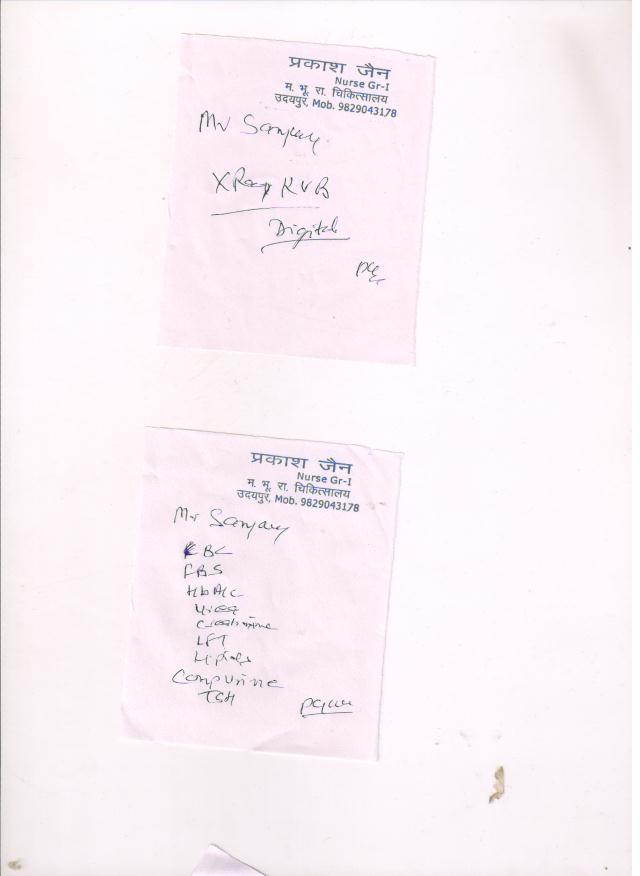 प्रकाश जैन
Nurse Gr-I
म. भू. रा. चिकित्सालय
उदयपुर, Mob. 9829043178
Mr Sanjay
X Ray KUB
Digital
प्रकाश जैन
Nurse Gr-I
म. भू. रा. चिकित्सालय
उदयपुर, Mob. 9829043178
Mr Sanjay
CBC
FBS
HbA1C
Urea
Creatinine
LFT
Lipids
Comp Urine
TSH